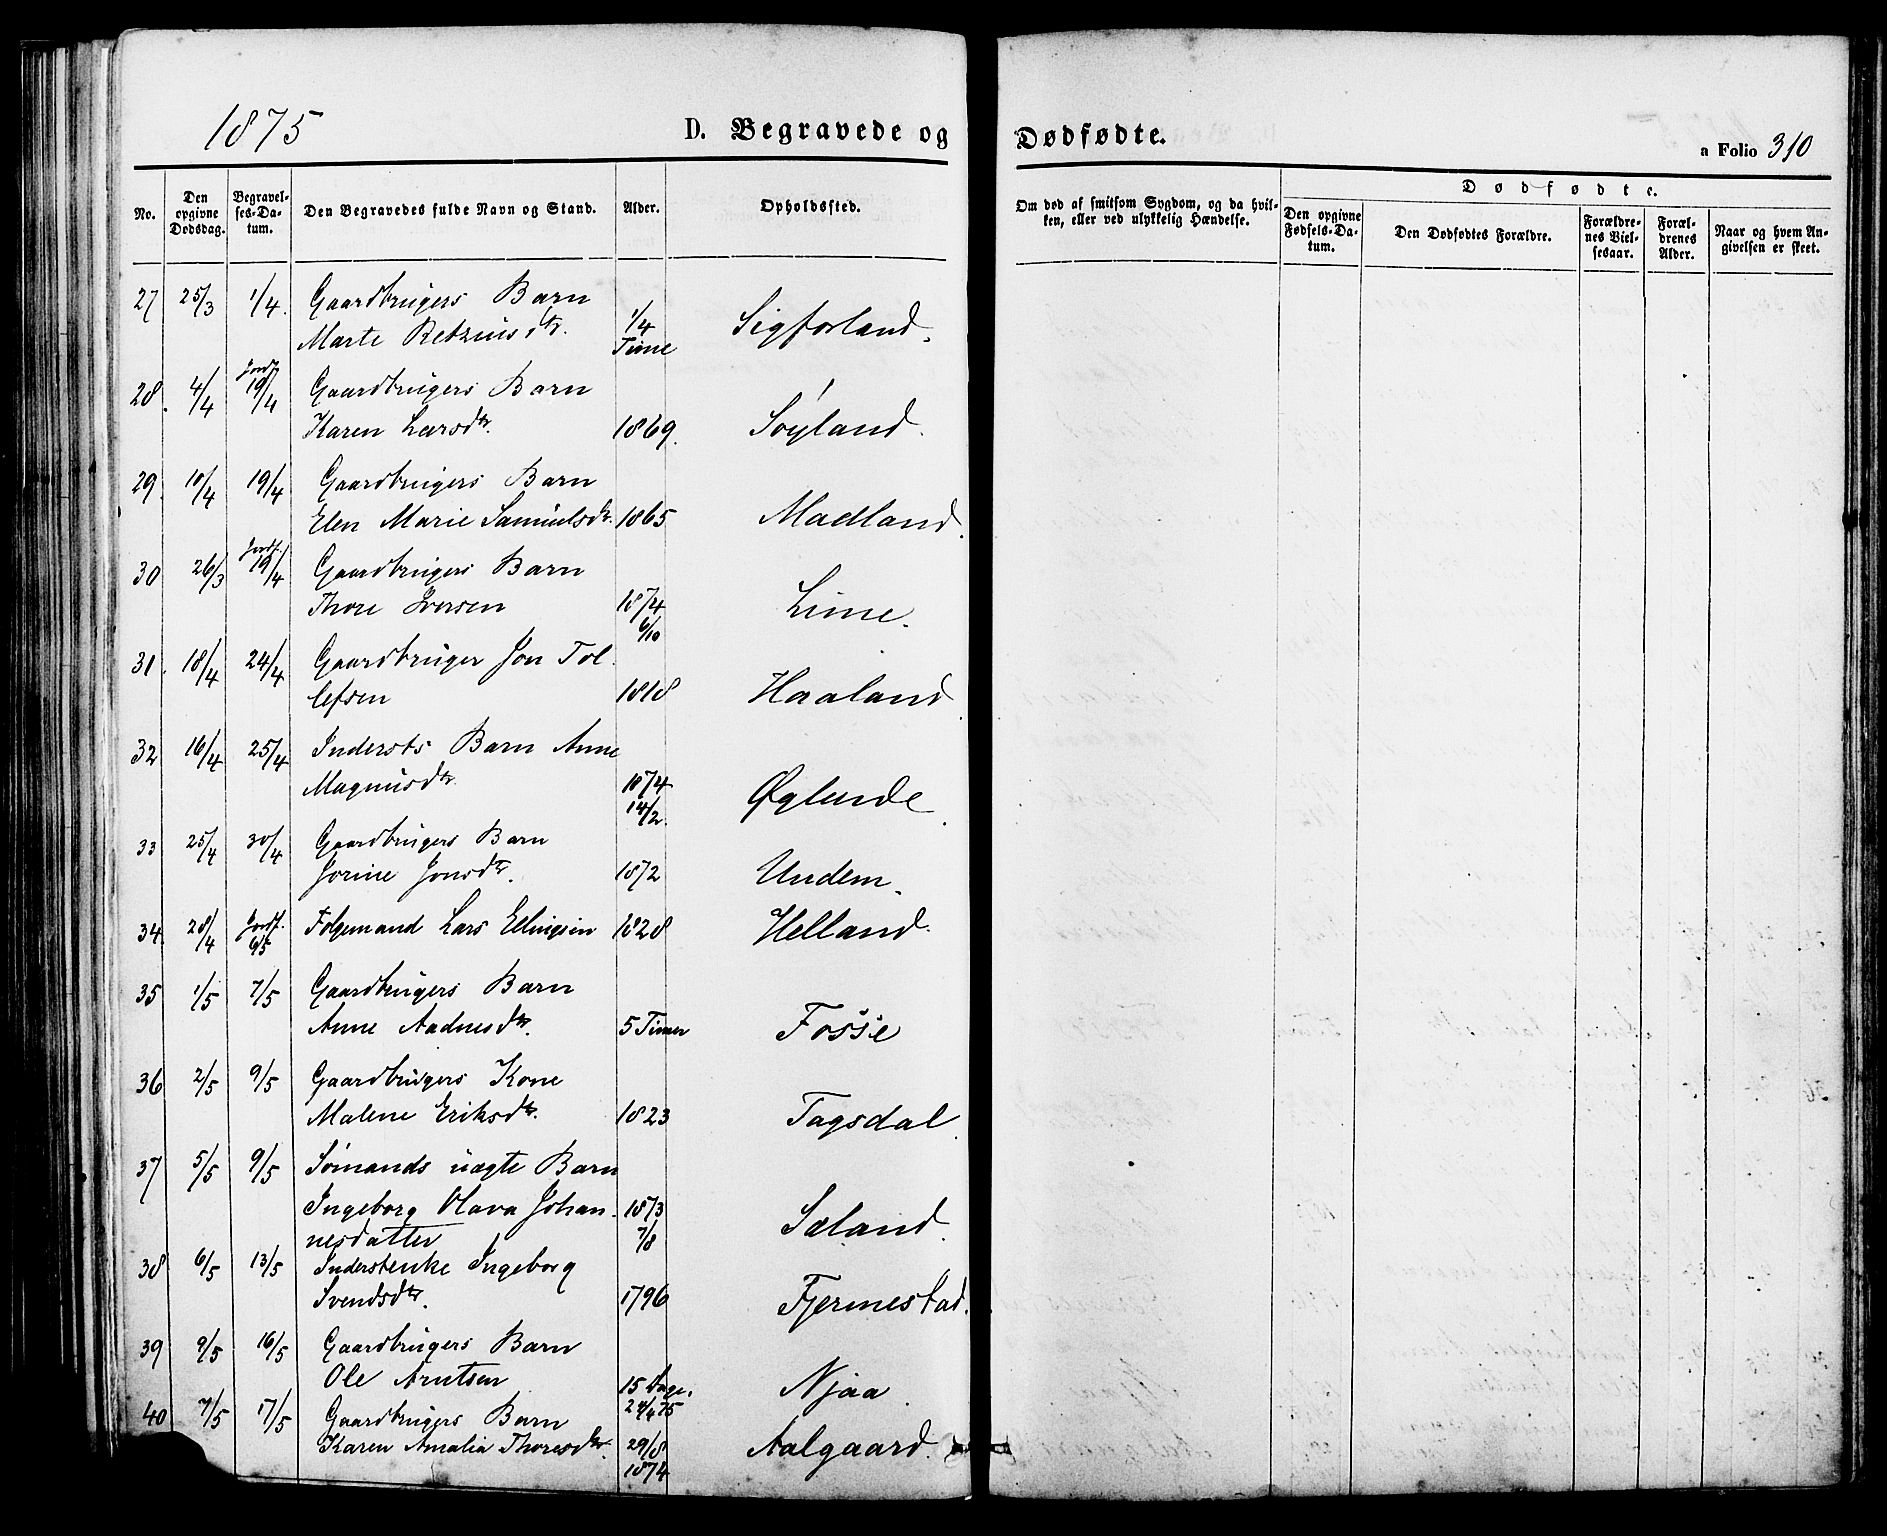 1875
D. Begravede og Dødfødte.
a Folio 310
No.
Den opgivne Dødsdag.
Begravelses-Datum.
Den Begravedes fulde Navn og Stand.
Alder.
Opholdssted.
Om død af smitsom Sygdom, og da hvilken, eller ved ulykkelig Hændelse.
Dødfødte.
Den opgivne Fødsels-Datum.
Den Dødfødtes Forældre.
Forældrenes Vielsesaar.
Forældrenes Alder.
Naar og hvem Angivelsen er skeet.
27 25/3 1/4. Gaardbrugers Barn
Marte Retziusdtr. 1/4 Time Sigforland.
28. 4/4 Jordf. 19/4 Gaardbrugers Barn
Karen Larsdtr. 1869. Søyland.
29. 10/4 19/4 Gaardbrugers Barn
Elen Marie Samuelsdtr. 1865 Madland.
30 26/3 Jordf. 19/4 Gaardbrugers Barn
Thore Iversen 1874 6/10 Lime.
31. 18/4 24/4 Gaardbruger Jon Tol
lefsen 1818 Haaland.
32 16/4 25/4 Indersts Barn Anne
Magnusdtr. 1874 14/2. Øglende.
33 25/4 30/4 Gaardbrugers Barn
Jorine Jonsdtr. 1872 Undem.
34. 28/4 Jordf. 6/5 Folgemand Lars Ellingsen 1828 Helland.
35 1/5 7/5 Gaardbrugers Barn
Anne Aadnesdtr. 5 Timer Fosse
36 2/5 9/5 Gaardbrugers Kone
Malene Eriksdtr. 1823 Tagsdal.
37 5/5 9/5 Sømands uægte Barn
Ingeborg Olava Johan-
nesdatter 1873 7/8 Sæland.
38 6/5 13/5 Inderstenke Ingeborg
Svendsdtr. 1796 Fjermestad.
39 9/5 16/5 Gaardbrugers Barn
Ole Arntsen 15 Dage. 24/4 75 Njaa
40 7/5 17/5 Gaardbrugers Barn
Karen Amalia Thoresdtr. 29/8 1874 Aalgaard.